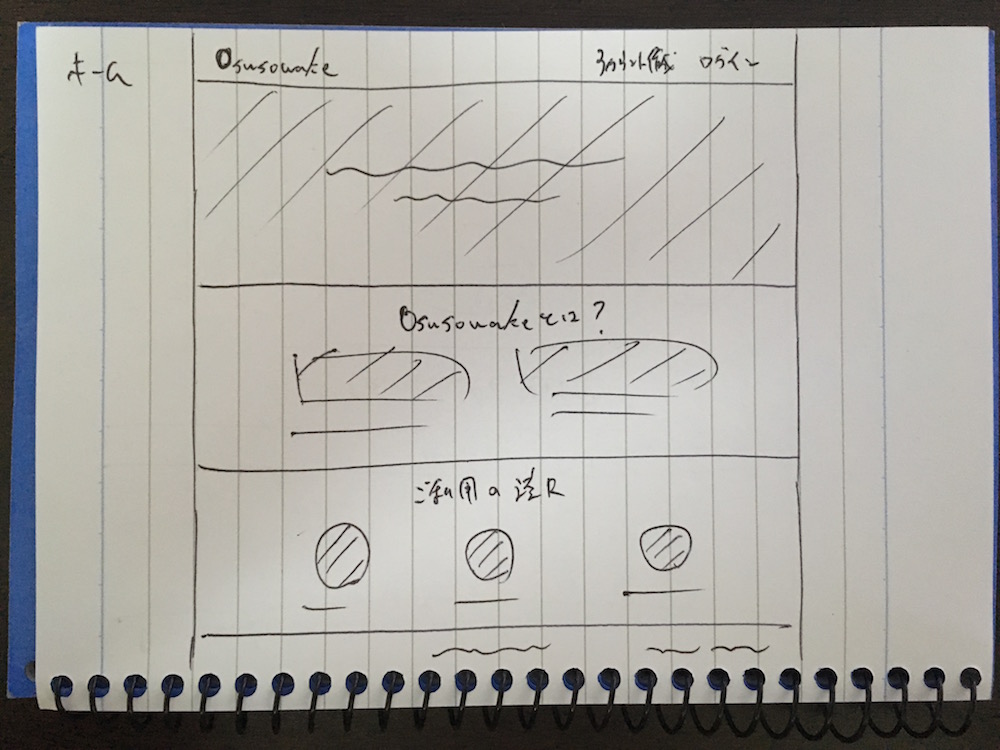 ホーム
Osusowake アカウント作成 ログイン
Osusowakeとは?
ご利用の流れ